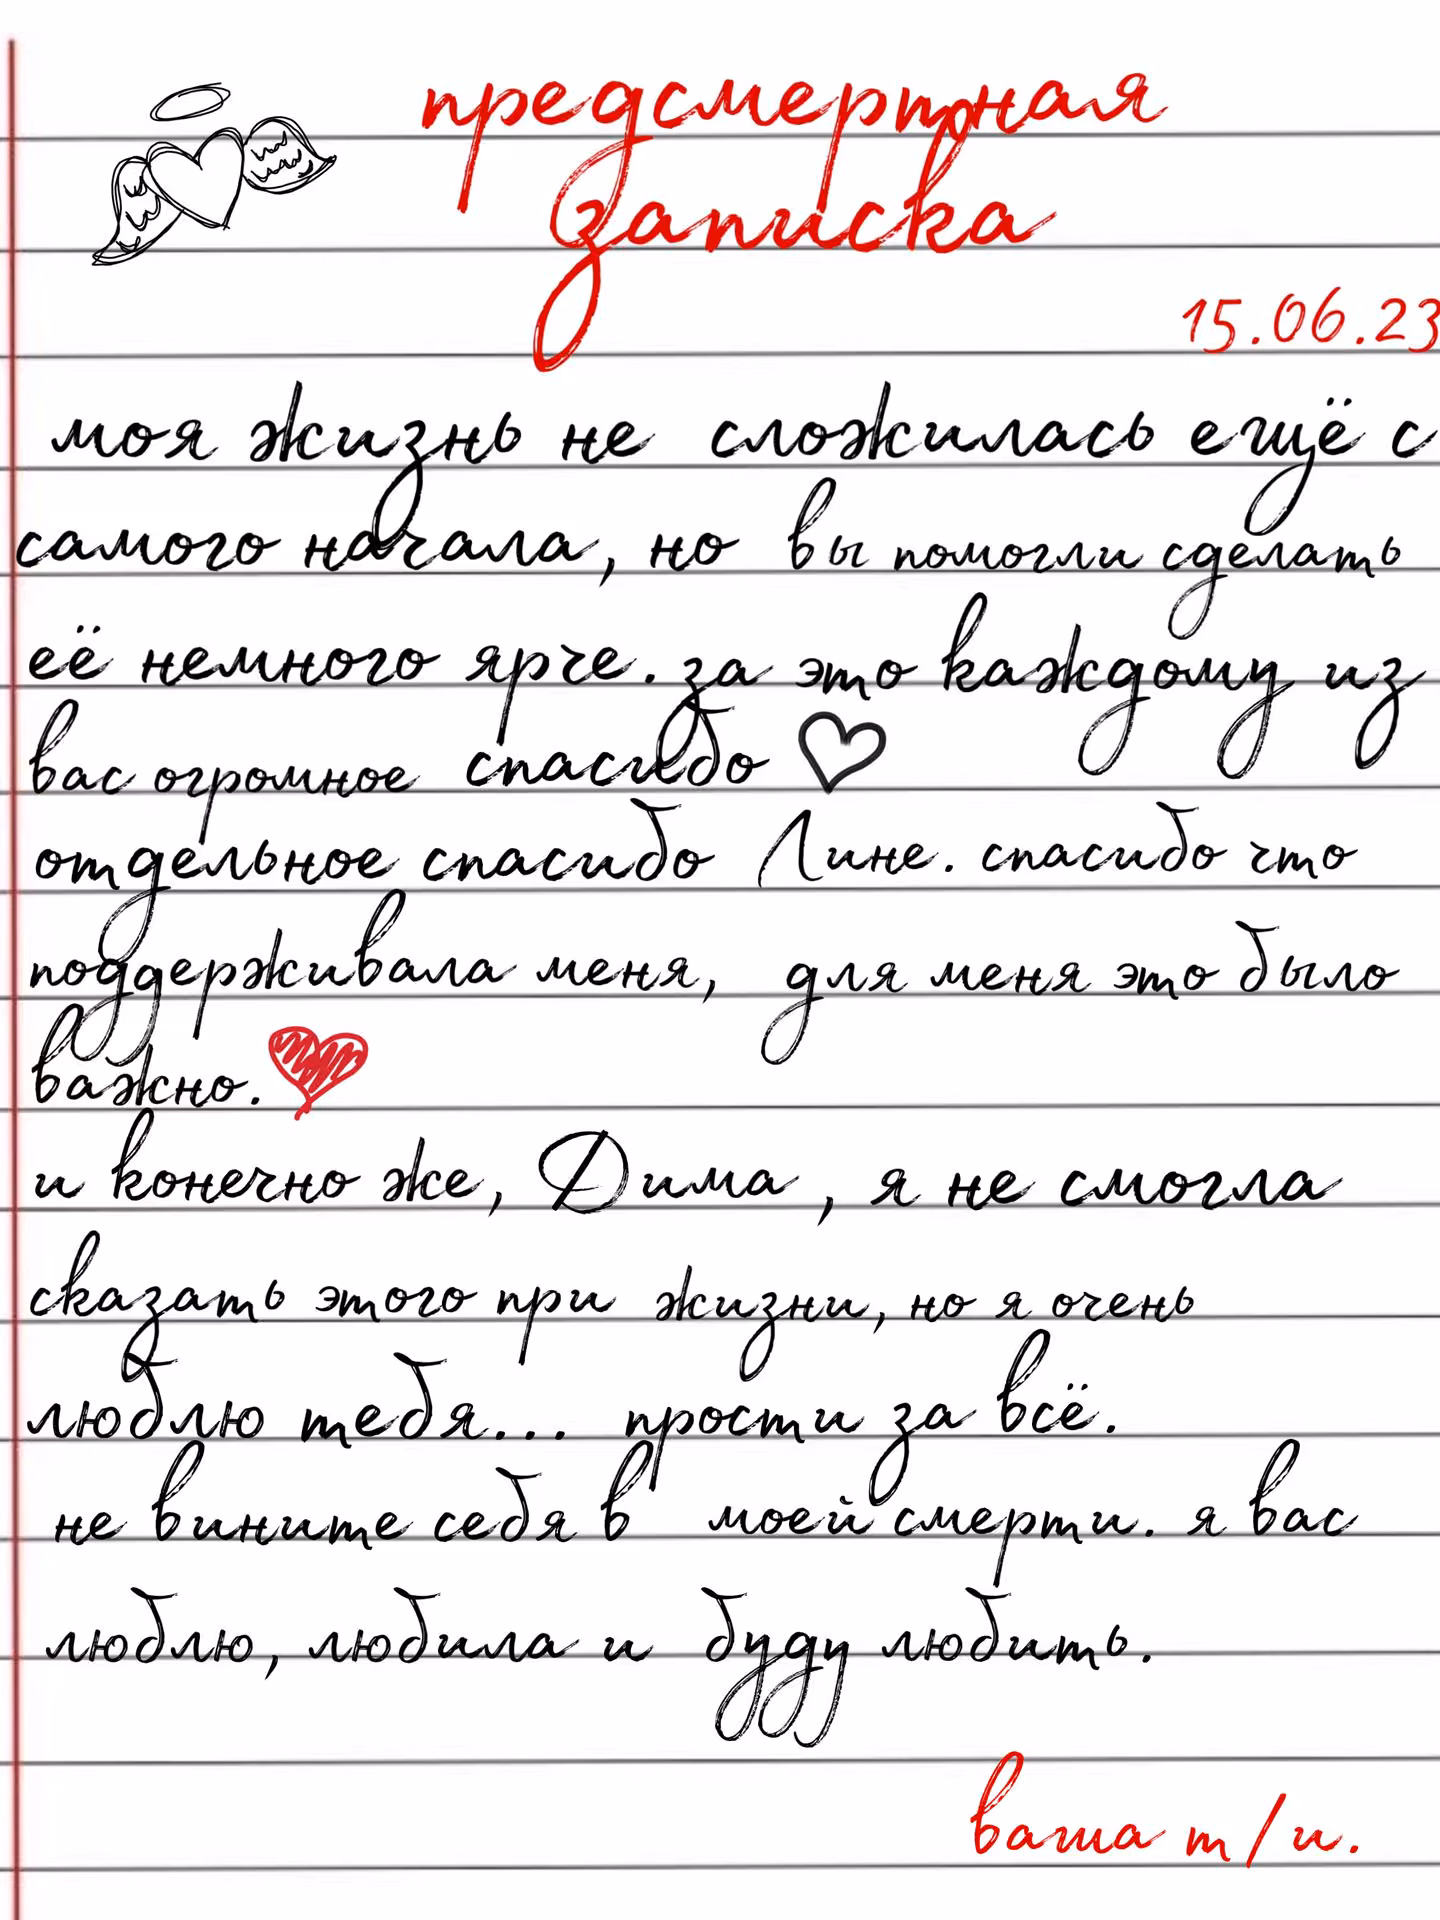 предсмертная
записка
15.06.23
моя жизнь не сложилась ещё с
самого начала, но вы помогли сделать
её немного ярче. за это каждому из
вас огромное спасибо
отдельное спасибо Лине. спасибо что
поддерживала меня, для меня это было
важно.
и конечно же, Дима, я не смогла
сказать этого при жизни, но я очень
люблю тебя... прости за всё.
не вините себя в моей смерти. я вас
люблю, любила и буду любить.
ваша т/и.